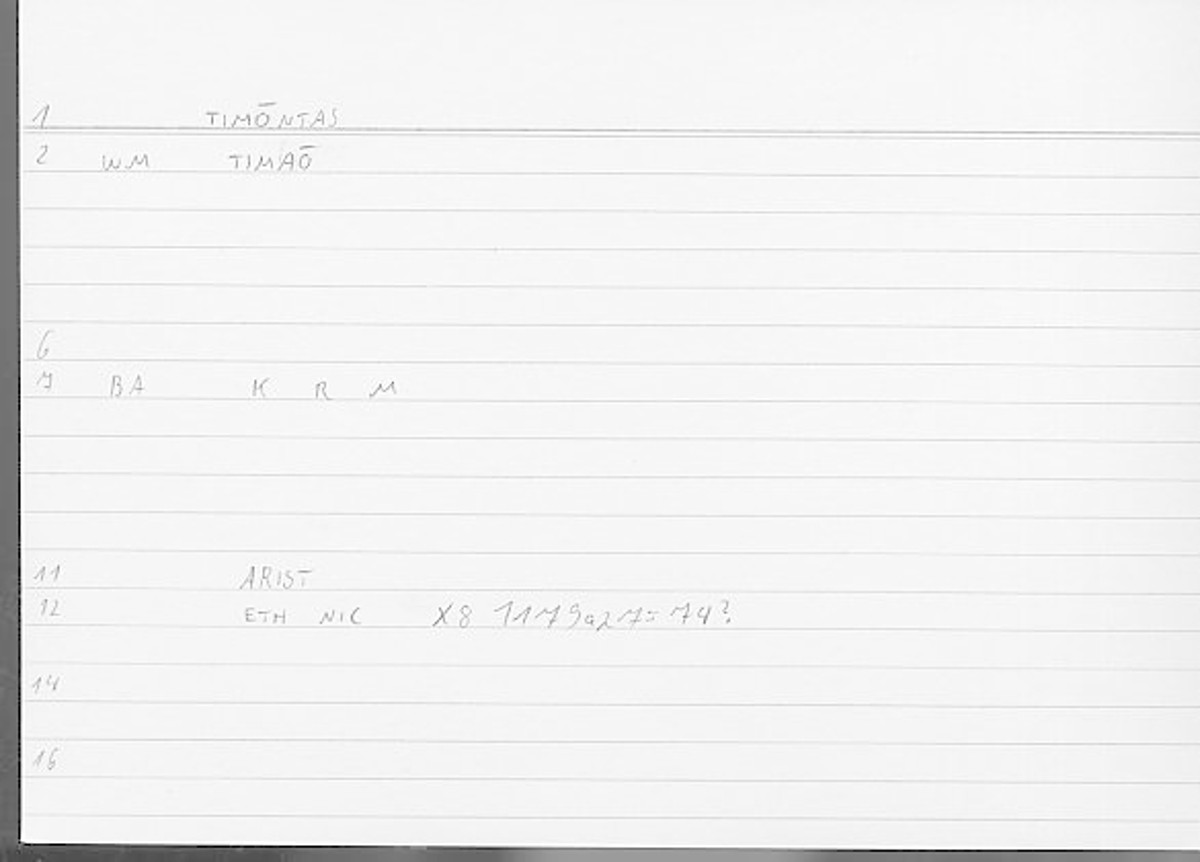 1 TIMŌNTAS
2 WM TIMAŌ
6
7 BA K R M
11 ARIST
12 ETH NIC X8 1179a27= 74?
14
16